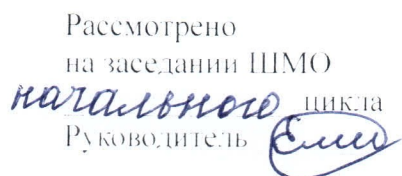 Рассмотрено
на заседании ШМО
начального цикла
Руководитель